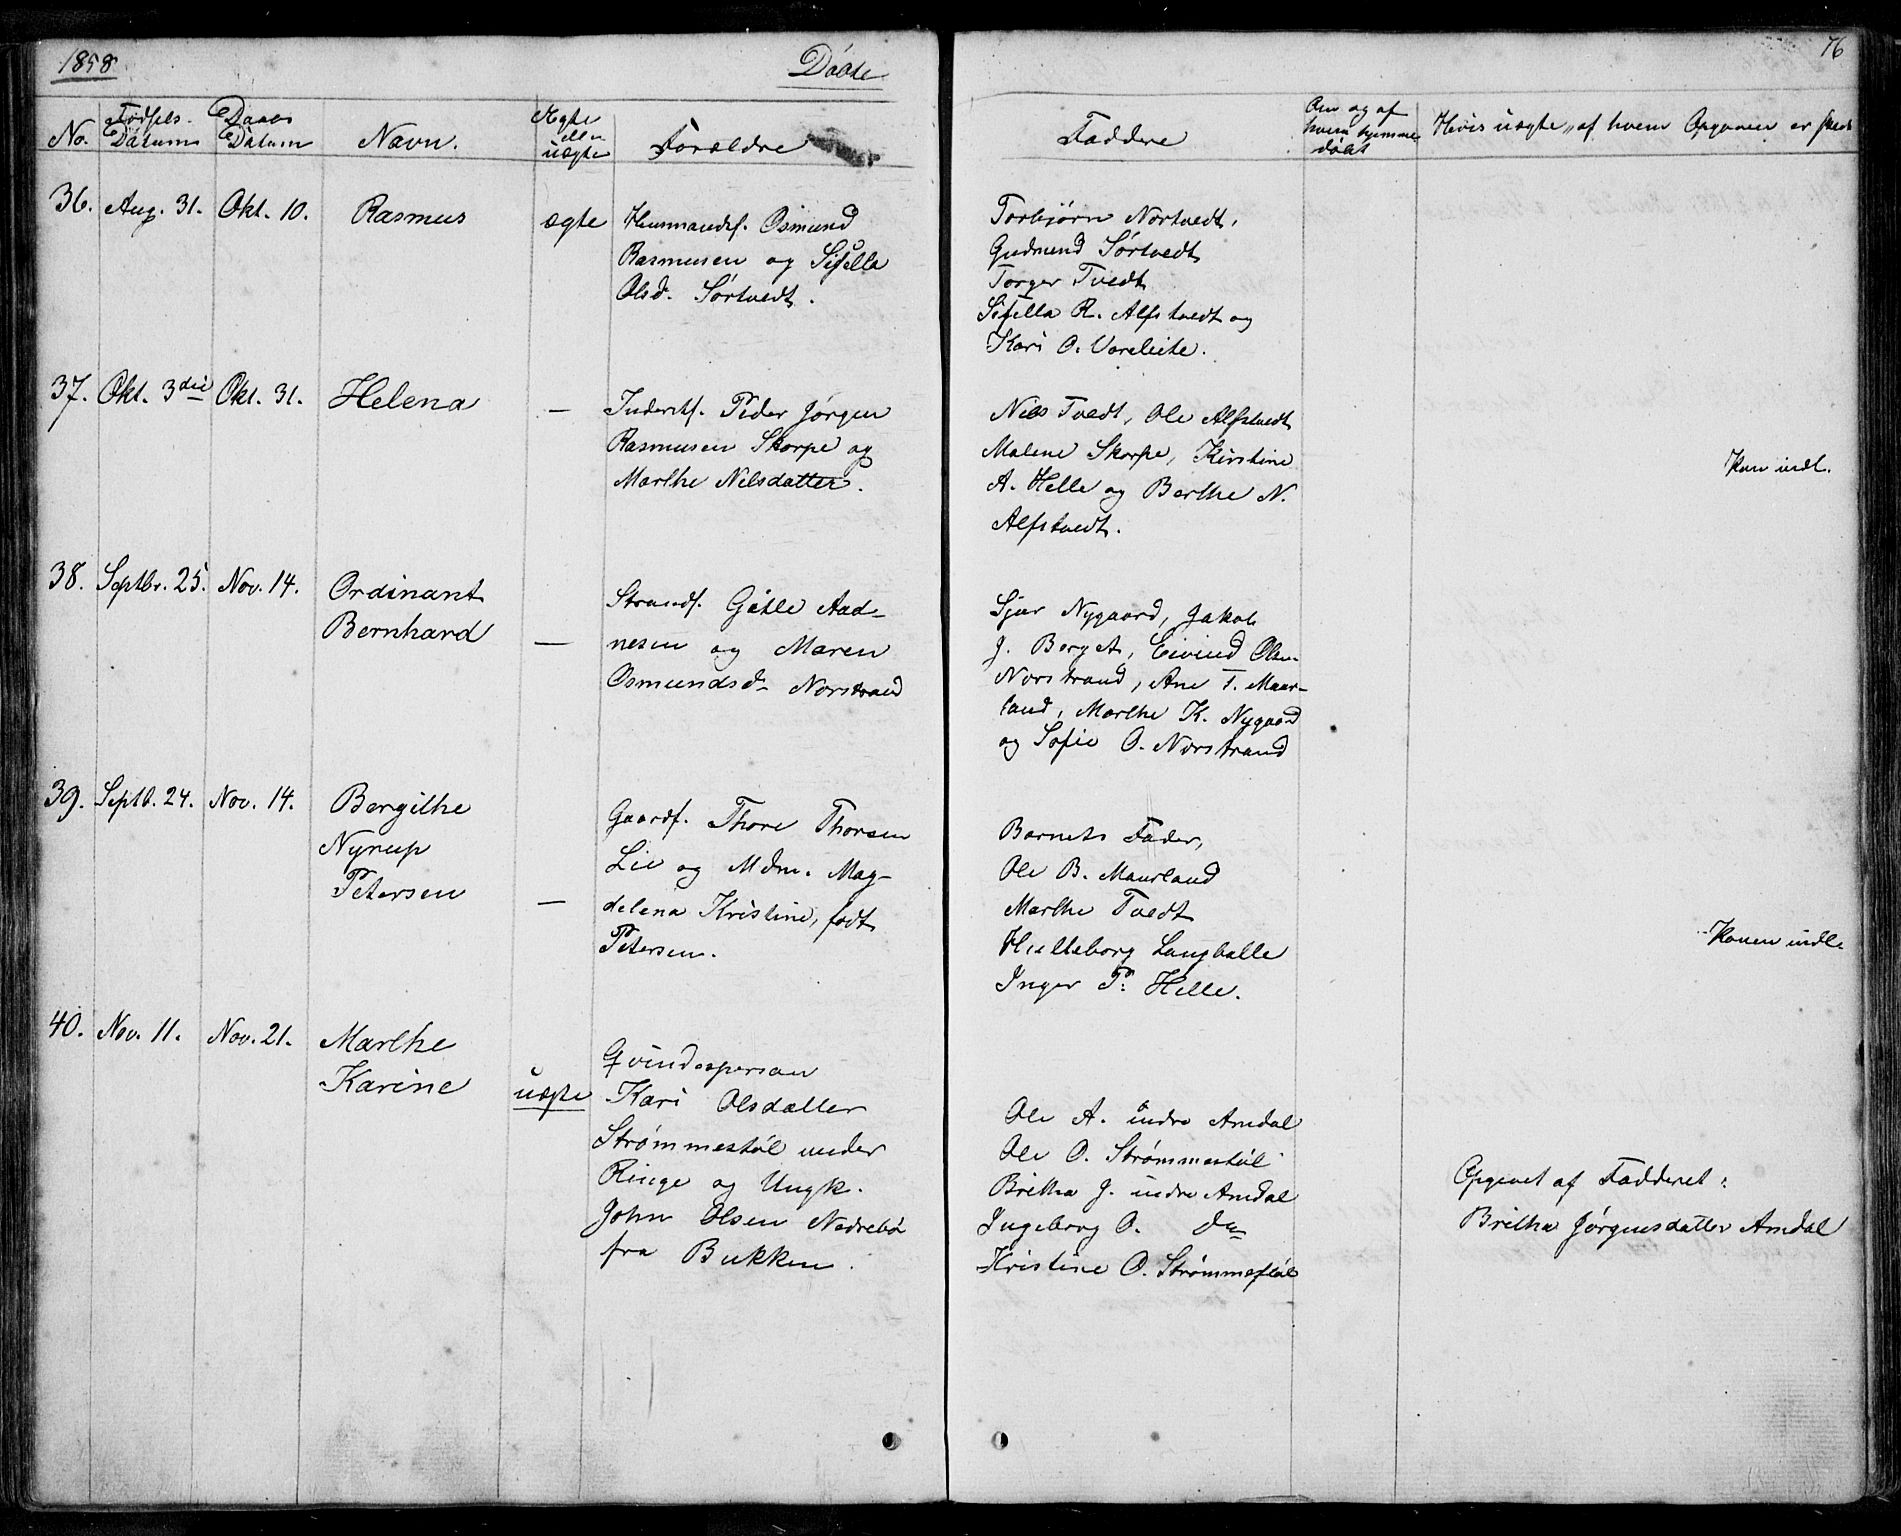 1858
Døbte
76
No.
Fødsels-
Datum
Daabs
Datum
Navn.
Ægte
eller
uægte
Forældre
Faddere
Om og af
hvem hjemme-
døbt
Hvis uægte, af hvem Opgaven er skedt
36. Aug. 31. Okt. 10. Rasmus ægte
Huusmandsf. Osmund
Rasmusen og Sisella
Olsd. Sørtvedt.
Torbjørn Nortvedt,
Gudmund Sørtvedt
Torger Tvedt
Sisella R. Alfstvedt og
Kari O. Voreleite.
37. Okt. 3die Okt. 31. Helena —
Inderstf. Peder Jørgen
Rasmusen Skorpe og
Marthe Nelsdatter.
Nels Tvedt, Ole Alfstvedt
Malene Skorpe, Kirstine
A. Helle og Berthe N.
Alfstvedt.
Kon indl.
38. Septbr. 25. Nov. 14. Ordinant
Bernhard —
Strandf. Gitle Aad-
nesen og Maren
Osmundsd. Norstrand
Sjur Nygaard, Jakob
J. Berget, Eivind Olsen
Norstrand, Ane T. Maur-
land, Marthe K. Nygaard
og Sofie O. Norstrand
39. Septb. 24. Nov. 14. Bergithe
Nyrup
Petersen —
Gaardf. Thore Thorsen
Lie og Mdm. Mag-
delena Kristine, født
Petersen.
Barnets Fader,
Ole B. Maurland
Marthe Tvedt
Hulleborg Langballe
Inger P. Helle.
Konen indl.
40. Nov. 11. Nov. 21. Marthe
Karine uægte
Qvindesperson
Kari Olsdatter
Strømmestøl under
Ringe og Ungk.
John Olsen Nedrebø
fra Bukken.
Ole A. indre Amdal
Ole O. Strømmestøl
Britha J. indre Amdal
Ingeborg O. do
Kristine O. Strømmestøl
Opgivet af Fadderet:
Britha Jørgensdatter Amdal